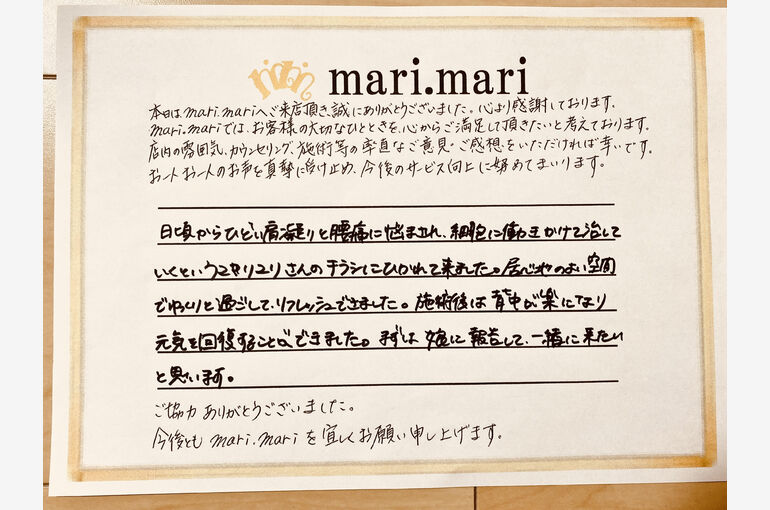 mari.mari
本日はmari.mariへご来店頂き、誠にありがとうございました。心より感謝しております。
mari.mariでは、お客様の大切なひとときを、心からご満足して頂きたいと考えております。
店内の雰囲気、カウンセリング、施術等の率直なご意見・ご感想をいただければ幸いです。
お一人お一人のお声を真摯に受け止め、今後のサービス向上に努めてまいります。
日頃からひどい肩凝りと腰痛に悩まされ、細胞に働きかけて治して
いくというユキリユリさんのチラシにひかれて来ました。居心地のよい空間
でゆっくりと過ごして、リフレッシュできました。施術後は背中が楽になり
元気を回復することができました。まずは嫁に報告して、一緒に来たい
と思います。
ご協力ありがとうございました。
今後とも mari.mari を宜しくお願い申し上げます。